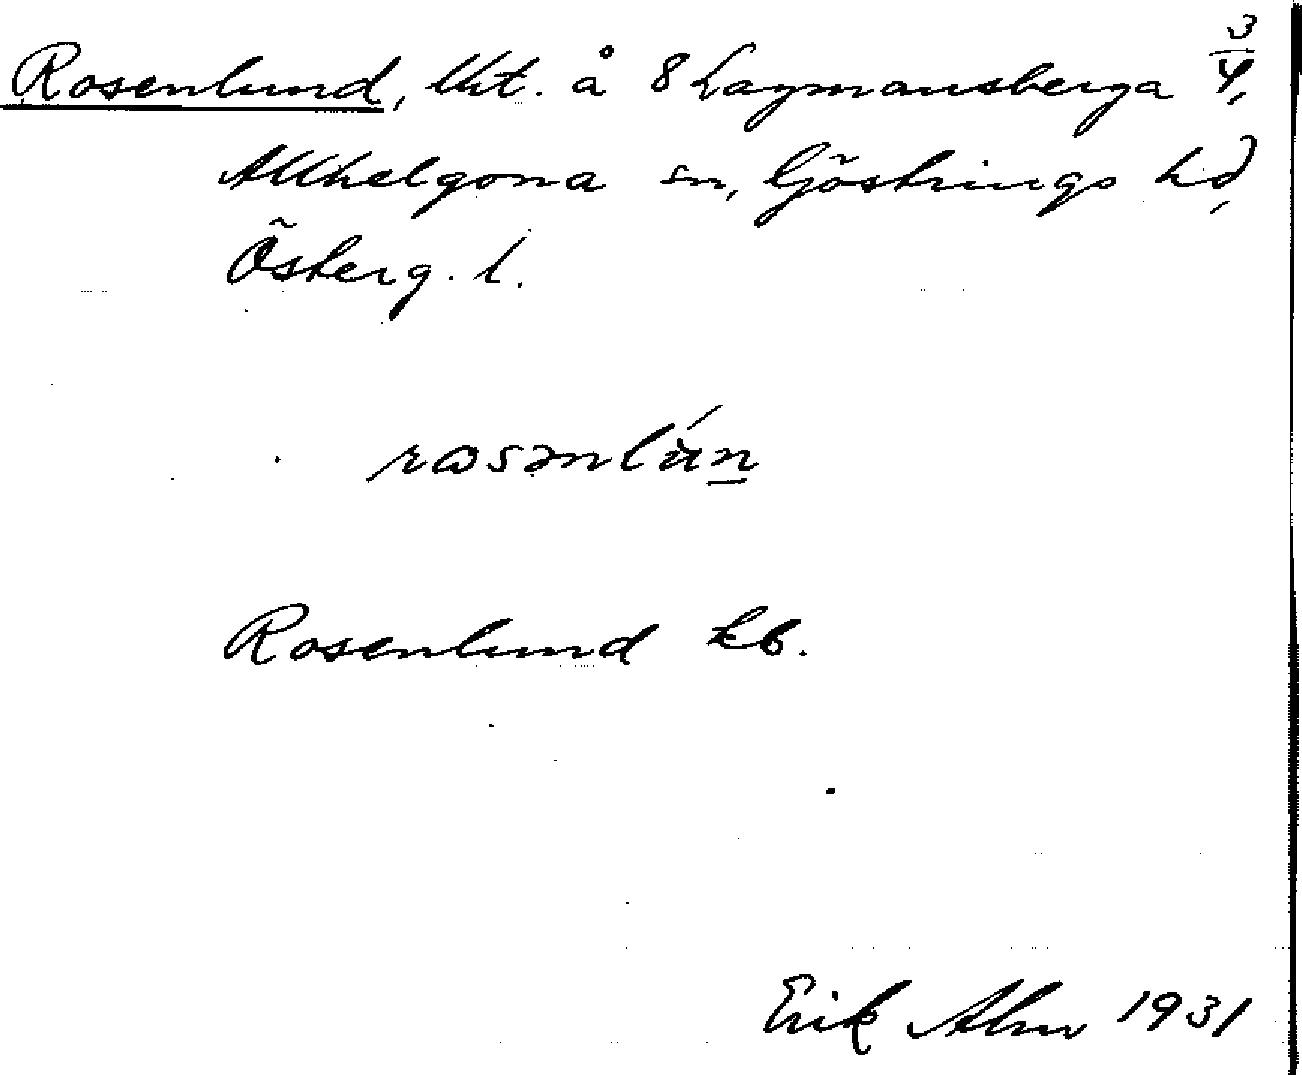 Rosenlund, lht. å 8 Lagmansberga 3/4,
Allhelgona sn, Göstrings hd,
Österg. l.
rosənlún
Rosenlund kb.
Erik Alm 1931